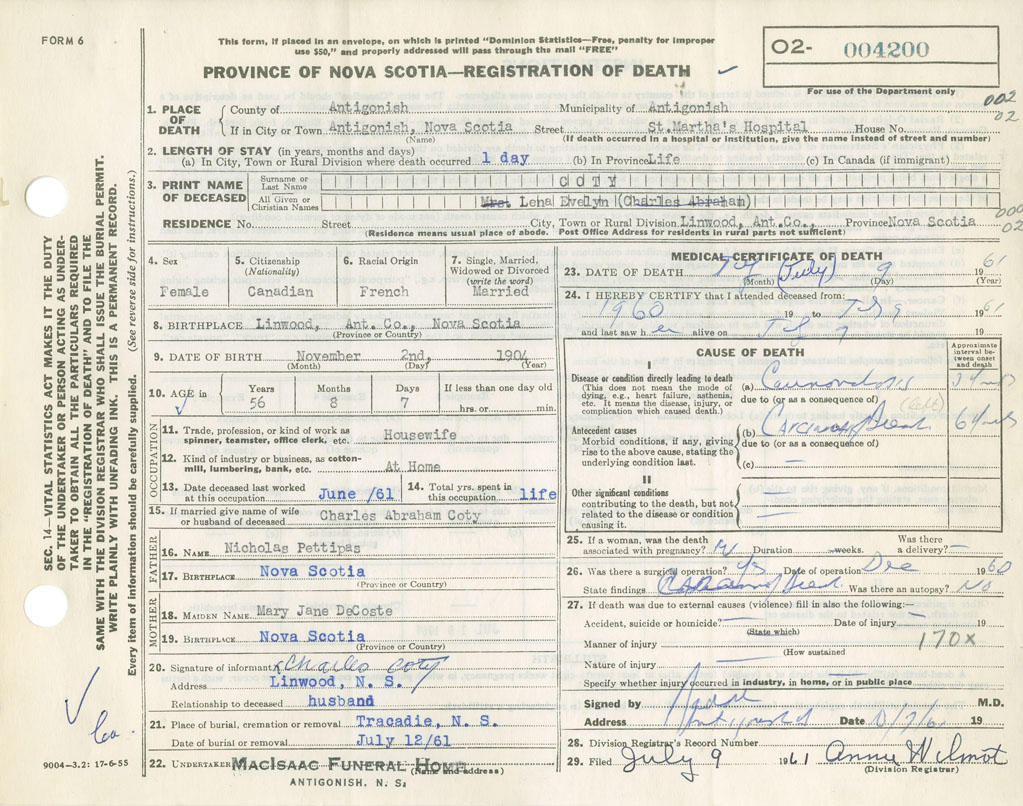 FORM 6
This form, if placed in an envelope, on which is printed "Dominion Statistics—Free, penalty for improper
use $50," and properly addressed will pass through the mail "FREE"
PROVINCE OF NOVA SCOTIA—REGISTRATION OF DEATH
02- 004200
For use of the Department only
002
02
SEC. 14—VITAL STATISTICS ACT MAKES IT THE DUTY
OF THE UNDERTAKER OR PERSON ACTING AS UNDER-
TAKER TO OBTAIN ALL THE PARTICULARS REQUIRED
IN THE "REGISTRATION OF DEATH" AND TO FILE THE
SAME WITH THE DIVISION REGISTRAR WHO SHALL ISSUE THE BURIAL PERMIT.
WRITE PLAINLY WITH UNFADING INK. THIS IS A PERMANENT RECORD.
Every item of information should be carefully supplied. (See reverse side for instructions.)
1. PLACE OF DEATH
County of Antigonish Municipality of Antigonish
If in City or Town Antigonish, Nova Scotia Street St.Martha's Hospital House No.
(Name) (If death occurred in a hospital or institution, give the name instead of street and number)
2. LENGTH OF STAY (in years, months and days)
(a) In City, Town or Rural Division where death occurred 1 day (b) In Province Life (c) In Canada (if immigrant)
3. PRINT NAME OF DECEASED
Surname or Last Name COTY
All Given or Christian Names Mrs. Lena Evelyn (Charles Abraham)
000
02
RESIDENCE No. Street City, Town or Rural Division Linwood, Ant.Co., Province Nova Scotia
(Residence means usual place of abode. Post Office Address for residents in rural parts not sufficient)
4. Sex
Female
5. Citizenship
(Nationality)
Canadian
6. Racial Origin
French
7. Single, Married,
Widowed or Divorced
(write the word)
Married
8. BIRTHPLACE Linwood, Ant. Co., Nova Scotia
(Province or Country)
9. DATE OF BIRTH November 2nd, 1904
(Month) (Day) (Year)
10. AGE in
Years Months Days If less than one day old
56 8 7 hrs. or min.
OCCUPATION
11. Trade, profession, or kind of work as
spinner, teamster, office clerk, etc. Housewife
12. Kind of industry or business, as cotton-
mill, lumbering, bank, etc. At Home
13. Date deceased last worked
at this occupation June /61
14. Total yrs. spent in
this occupation life
15. If married give name of wife
or husband of deceased Charles Abraham Coty
FATHER
16. NAME Nicholas Pettipas
17. BIRTHPLACE Nova Scotia
(Province or Country)
MOTHER
18. MAIDEN NAME Mary Jane DeCoste
19. BIRTHPLACE Nova Scotia
(Province or Country)
20. Signature of informant x Charles Coty
Address Linwood, N. S.
Relationship to deceased husband
21. Place of burial, cremation or removal Tracadie, N. S.
Date of burial or removal July 12/61
22. UNDERTAKER MACISAAC FUNERAL HOME
(Name and address)
ANTIGONISH, N. S.
9004-3.2: 17-6-55
MEDICAL CERTIFICATE OF DEATH
23. DATE OF DEATH (July) 9 1961
(Month) (Day) (Year)
24. I HEREBY CERTIFY that I attended deceased from:
1960 19 to 9 1961
and last saw her alive on 19
CAUSE OF DEATH
Approximate
interval be-
tween onset
and death
I
Disease or condition directly leading to death
(This does not mean the mode of
dying, e.g., heart failure, asthenia,
etc. It means the disease, injury, or
complication which caused death.)
(a)
due to (or as a consequence of)
Antecedent causes
Morbid conditions, if any, giving
rise to the above cause, stating the
underlying condition last.
(b) Breast
due to (or as a consequence of)
(c) —
II
Other significant conditions
contributing to the death, but not
related to the disease or condition
causing it.
25. If a woman, was the death
associated with pregnancy? Duration weeks.
Was there
a delivery? —
26. Was there a surgical operation? Date of operation Dec 1960
State findings Was there an autopsy? No
27. If death was due to external causes (violence) fill in also the following:—
Accident, suicide or homicide? Date of injury 19
(State which)
Manner of injury 170X
(How sustained
Nature of injury
Specify whether injury occurred in industry, in home, or in public place
Signed by M.D.
Address Antigonish Date 19
28. Division Registrar's Record Number
29. Filed July 9 1961 Annie Wilmot
(Division Registrar)